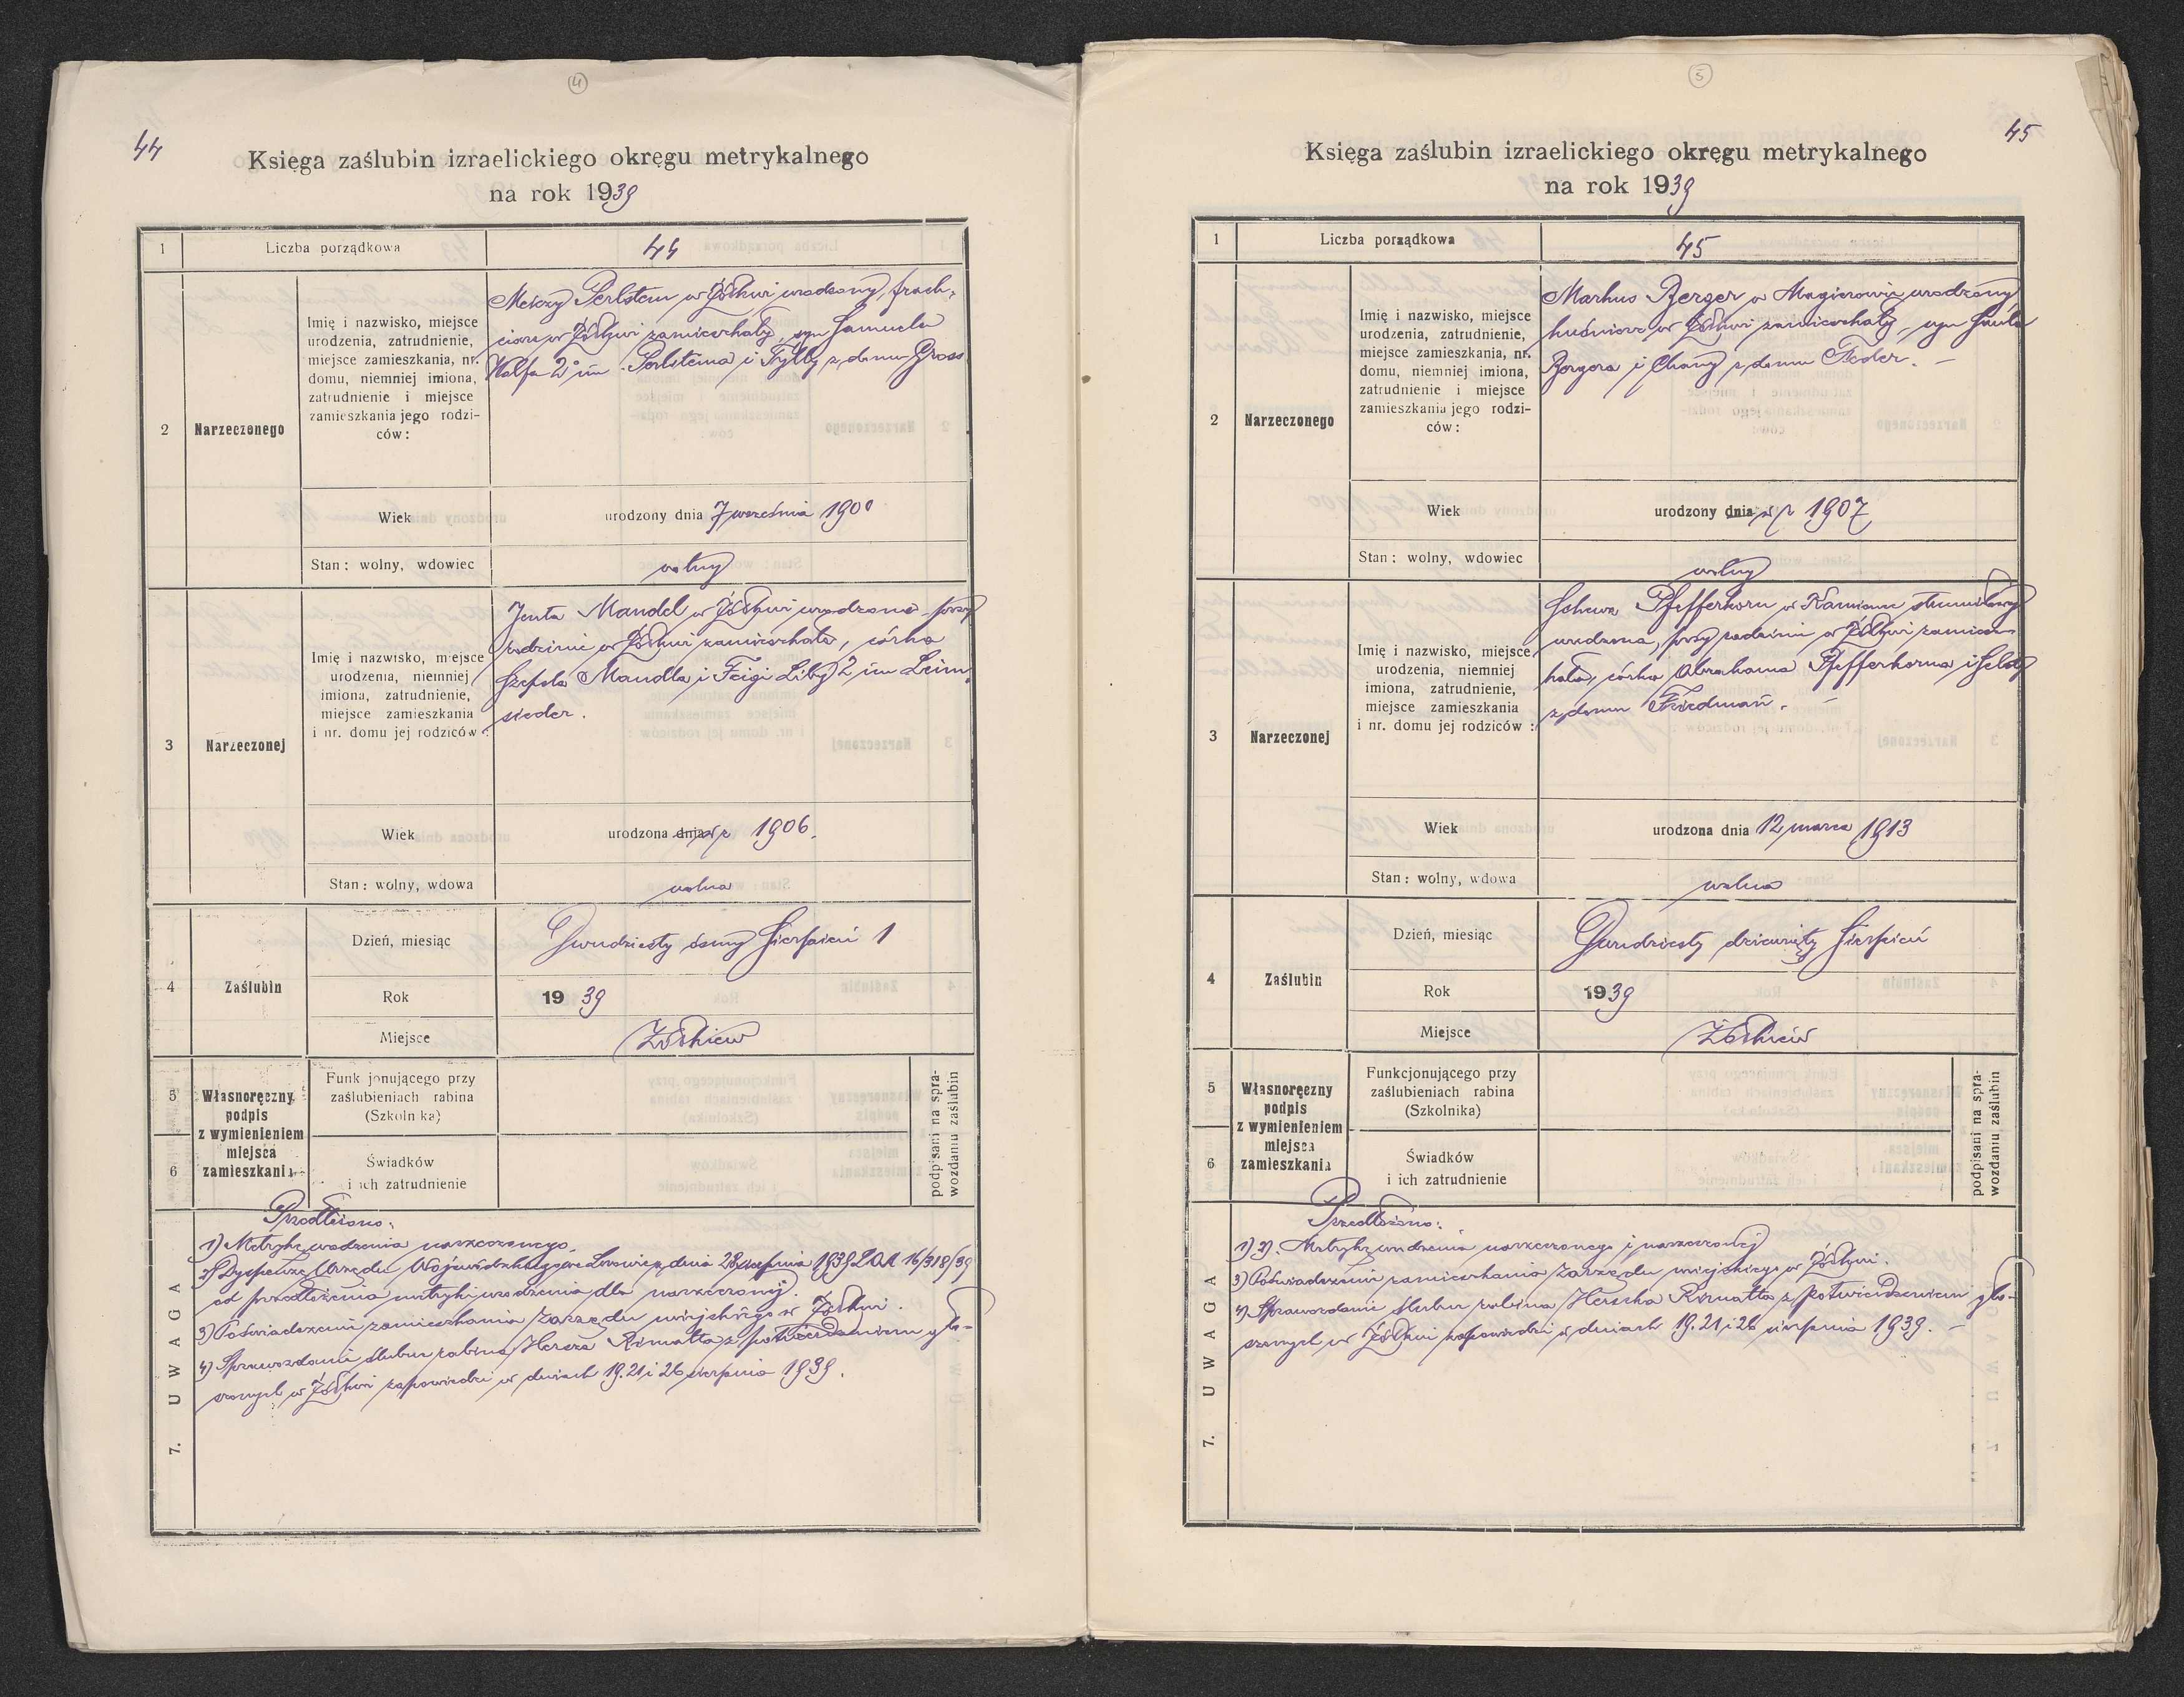 4
44
Księga zaślubin izraelickiego okręgu metrykalnego
na rok 1939
1 Liczba porządkowa 44
2 Narzeczonego
Imię i nazwisko, miejsce
urodzenia, zatrudnienie,
miejsce zamieszkania, nr.
domu, niemniej imiona,
zatrudnienie i miejsce
zamieszkania jego rodzi-
ców:
Perlstein w Żółkwi urodzony,
w Żółkwi zamieszkały, syn Samuela
Wolfa 2 im Perlsteina i Tylly z domu Gross
Wiek urodzony dnia 7 września 1900
Stan: wolny, wdowiec wolny
3 Narzeczonej
Imię i nazwisko, miejsce
urodzenia, niemniej
imiona, zatrudnienie,
miejsce zamieszkania
i nr. domu jej rodziców:
Jenta Mandel w Żółkwi urodzona przy
rodzinie w Żółkwi zamieszkała, córka
Mandla i Feigi Liby 2 im Leim
sieder.
Wiek urodzona dnia w r 1906.
Stan: wolny, wdowa wolna
4 Zaślubin
Dzień, miesiąc Dwudziesty ósmy Sierpień 1
Rok 1939
Miejsce Żółkiew
5
6
Własnoręczny
podpis
z wymienieniem
miejsca
zamieszkania
Funkcjonującego przy
zaślubieniach rabina
(Szkolnika)
Świadków
i ich zatrudnienie
podpisani na spra-
wozdaniu zaślubin
7. UWAGA
Przedłożono:
1) Metrykę urodzenia narzeczonego.
2) Dyspenzę Urzędu Wojewódzkiego we Lwowie z dnia 28 sierpnia 1939 16/318/39
od przedłożenia metryki urodzenia dla narzeczonej.
3) Poświadczenie zamieszkania Zarządu miejskiego w Żółkwi.
4) Sprawozdanie ślubu rabina Hersza Rimalta z potwierdzeniem gło-
szonych w Żółkwi zapowiedzi w dniach 19. 21 i 26 sierpnia 1939.
5
45
Księga zaślubin izraelickiego okręgu metrykalnego
na rok 1939
1 Liczba porządkowa 45
2 Narzeczonego
Imię i nazwisko, miejsce
urodzenia, zatrudnienie,
miejsce zamieszkania, nr.
domu, niemniej imiona,
zatrudnienie i miejsce
zamieszkania jego rodzi-
ców:
Markus Berger w Magierowie urodzony
kuśnierz w Żółkwi zamieszkały, syn Saula
Bergera i Chany z domu Feder. –
Wiek urodzony dnia w r 1907
Stan: wolny, wdowiec wolny
3 Narzeczonej
Imię i nazwisko, miejsce
urodzenia, niemniej
imiona, zatrudnienie,
miejsce zamieszkania
i nr. domu jej rodziców:
Pfefferkorn w Kamionce strumiłowej
urodzona, przy rodzinie w Żółkwi zamiesz
kała, córka Abrahama Pfefferkorna i
z domu Friedman. –
Wiek urodzona dnia 12 marca 1913
Stan: wolny, wdowa wolna
4 Zaślubin
Dzień, miesiąc Dwudziesty dziewiąty Sierpień
Rok 1939
Miejsce Żółkiew
5
6
Własnoręczny
podpis
z wymienieniem
miejsca
zamieszkania
Funkcjonującego przy
zaślubieniach rabina
(Szkolnika)
Świadków
i ich zatrudnienie
podpisani na spra-
wozdaniu zaślubin
7. UWAGA
Przedłożono:
1) 2). Metrykę urodzenia narzeczonego i narzeczonej
3) Poświadczenie zamieszkania Zarządu miejskiego w Żółkwi.
4) Sprawozdanie ślubu rabina Herscha Rimalta z potwierdzeniem gło-
szonych w Żółkwi zapowiedzi w dniach 19. 21 i 26 sierpnia 1939. –